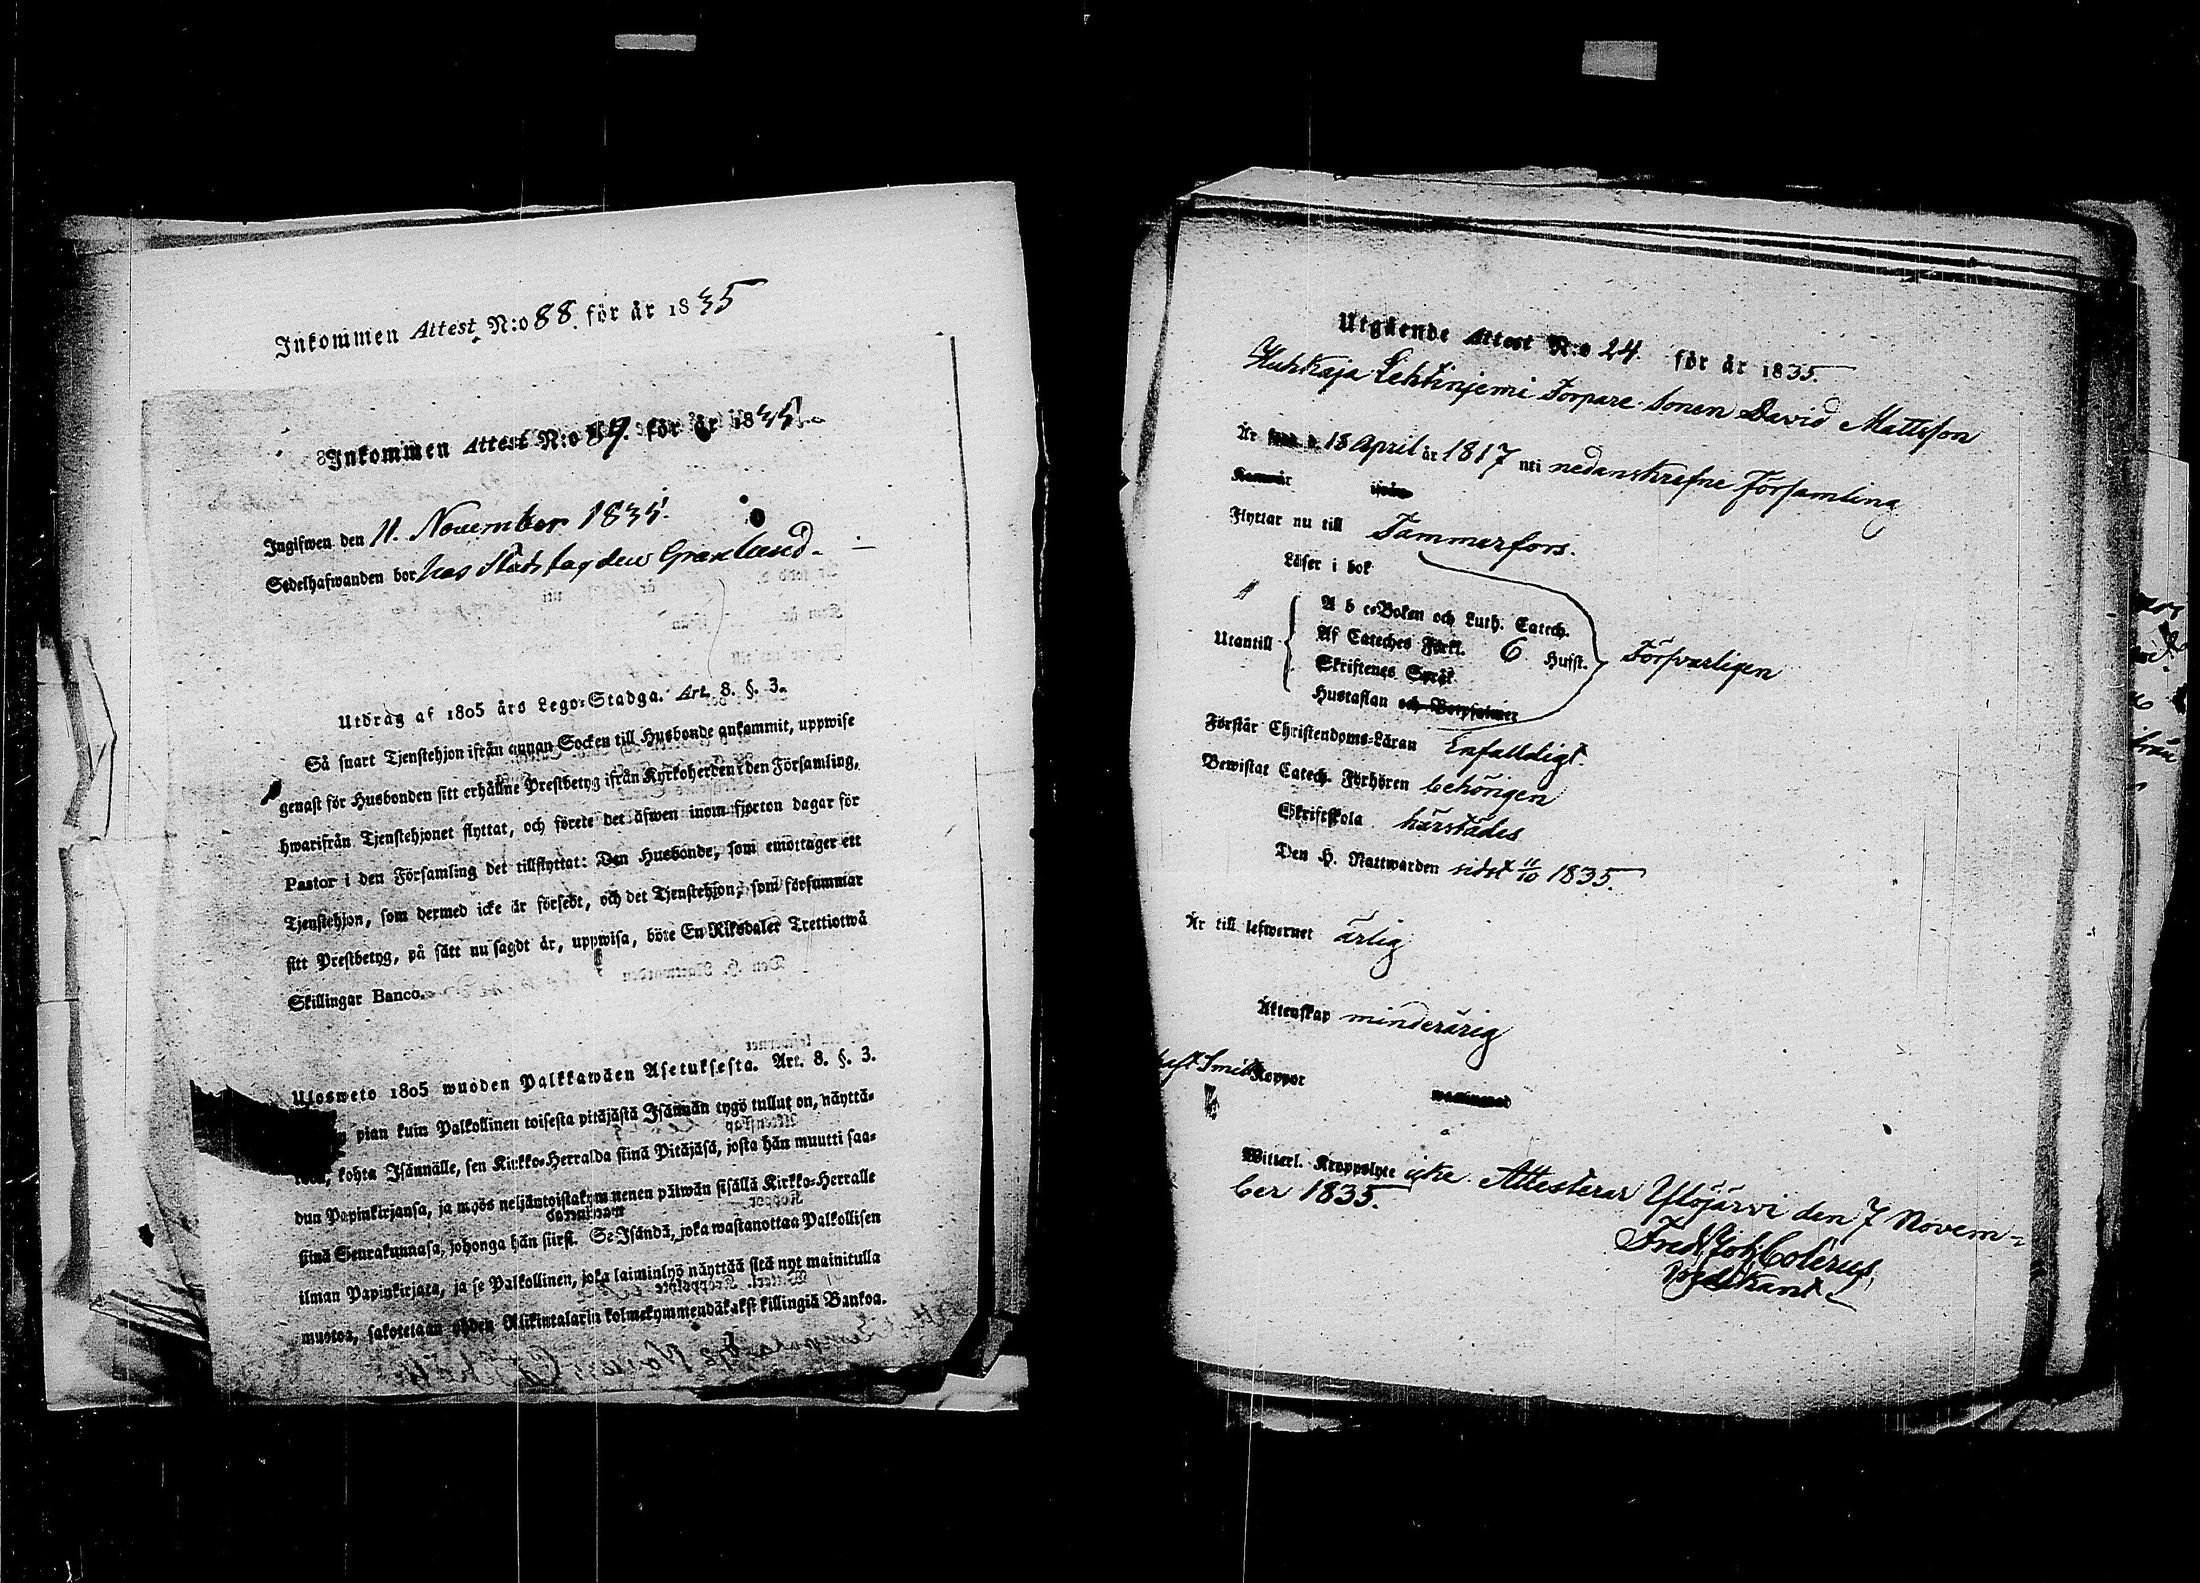 Inkommen Attest N:o 88. för år 1835
Inkommen Attest N:o 89. för år 1835.
Ingifwen den 11. November 1835.
Sedelhafwanden bor hos Stads lagden Granlund.
Utdrag af 1805 års Lego-Stadga. Art. 8. §. 3.
Så snart Tjenstehjon ifrån annan Socken till Husbonde ankommit, uppwise
genast för Husbonden sitt erhållne Prestbetyg ifrån Kyrkoherden i den Församling,
hwarifrån Tjenstehjonet flyttat, och förete det äfwen inom fjorton dagar för
Pastor i den Församling det tillflyttat: Den Husbonde, som emottager ett
Tjenstehjon, som dermed icke är försedt, och det Tjenstehjon, som försummar
sitt Prestbetyg, på sätt nu sagdt är, uppwisa, böte En Riksdaler Trettiotwå
Skillingar Banco.
Ulosweto 1805 wuoden Palkkawäen Asetuksesta. Art. 8. §. 3.
pian kuin Palkollinen toisesta pitäjästä Isännän tygö tullut on, näyttä-
kohta Isännälle, sen Kirkko-Herralda siinä Pitäjäsä, josta hän muutti saa-
dun Papinkirjansa, ja myös neljäntoistakymmenen päiwän sisällä Kirkko-Herralle
siinä Seurakunnasa, johonga hän siirsi. Se Isändä, joka wastanottaa Palkollisen
ilman Papinkirjata, ja se Palkollinen, joka laiminlyö näyttää sitä nyt mainitulla
muotoa, sakotetaan yhden Riikintalarin kolmekymmendäkaksi killingiä Bankoa.
Utgående Attest N:o 24. för år 1835.
Huhkaja Lehtinjemi Torpare Sonen David Mattsson
Är född d. 18 April år 1817 uti nedanskrefne Församling
Flyttar nu till Tammerfors.
Läser i bok
A b c-Boken och Luth. Catech.
Utantill Af Cateches Förkl. 6 Hufst. Försvarligen
Skriftenes Språk
Hustaflan och Botpsalmer
Förstår Christendoms-Läran Enfaldigt
Bewistat Catech. Förhören behörigen
Skriftskola härstädes
Den H. Nattwarden sidst 11/10 1835.
Är till lefwernet ärlig
Äktenskap minderårig
haft Smitt Koppor
Witterl. Kroppslyte icke. Attesterar Ylöjärvi den 7 Novem-
ber 1835.
Fred. Joh. Colerus,
Predikant